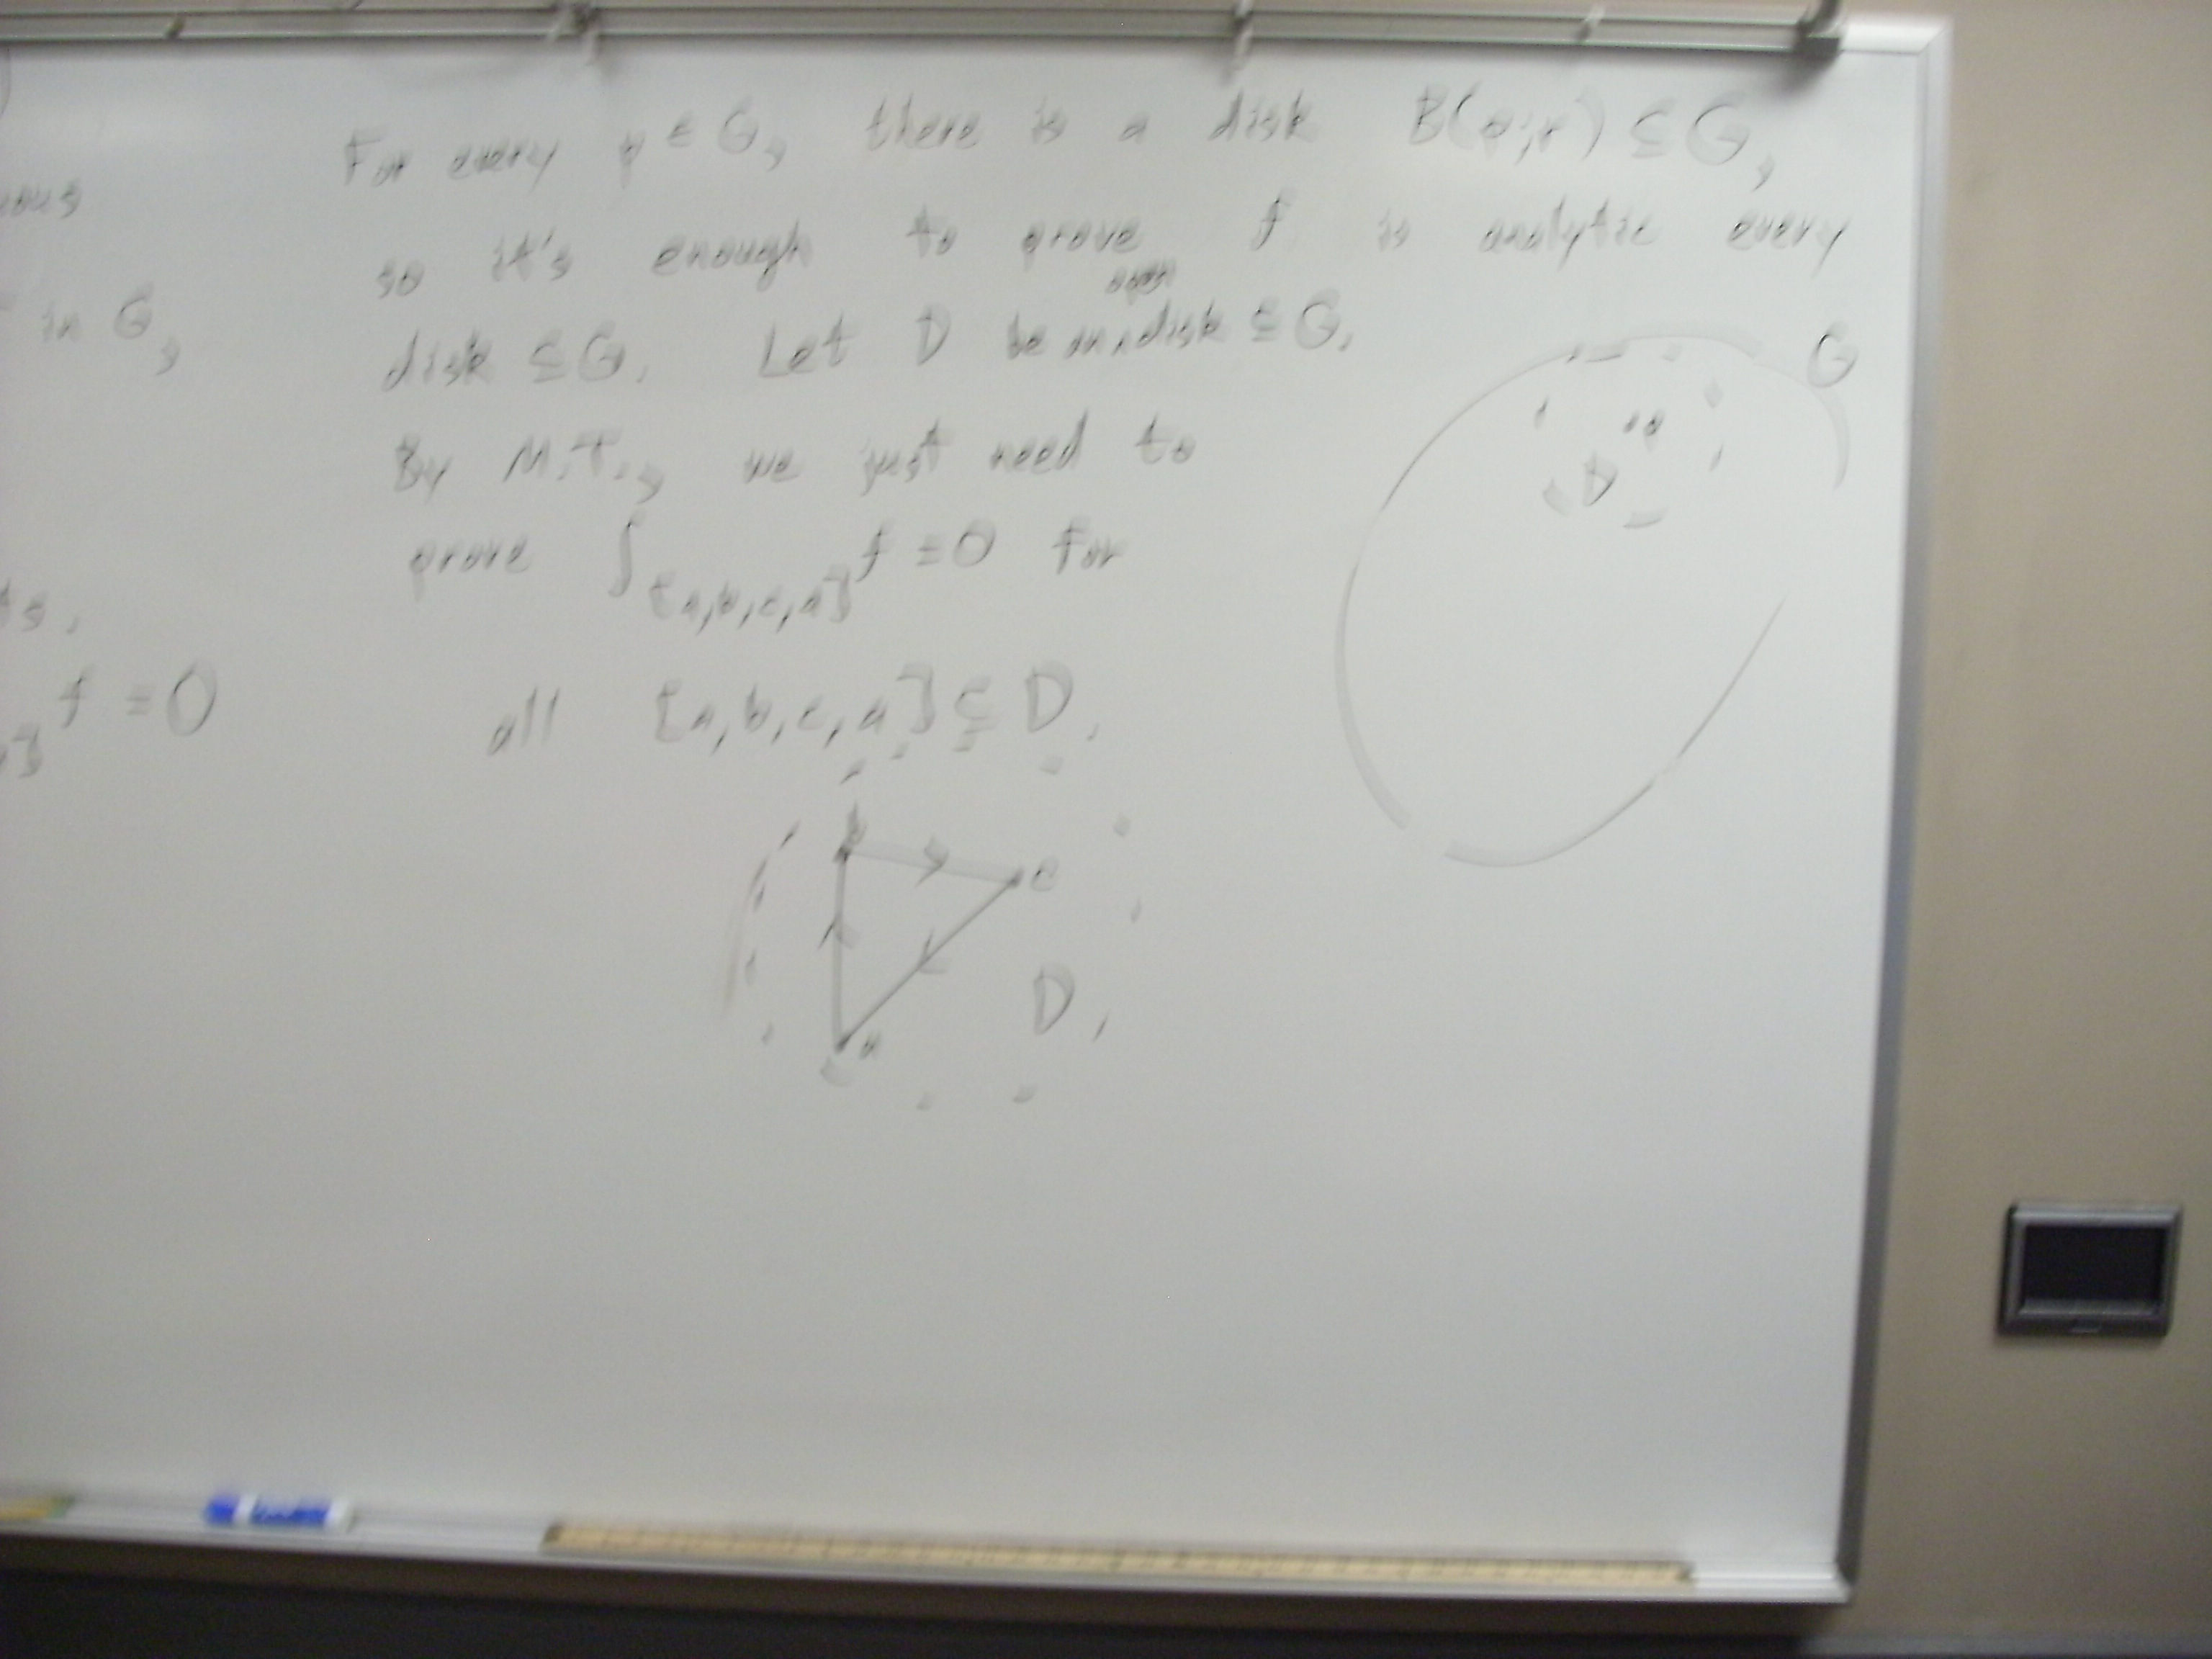 uous
in G,
ts.
f = 0
a]
For every p ∈ G, there is a disk B(p;r) ⊆ G,
so it's enough to prove f is analytic every
open
disk ⊆ G. Let D be an ∧ disk ⊆ G.
By M.T., we just need to
prove ∫[a,b,c,a] f = 0 for
all [a,b,c,a] ⊆ D.
G
p
D
b
c
D,
a